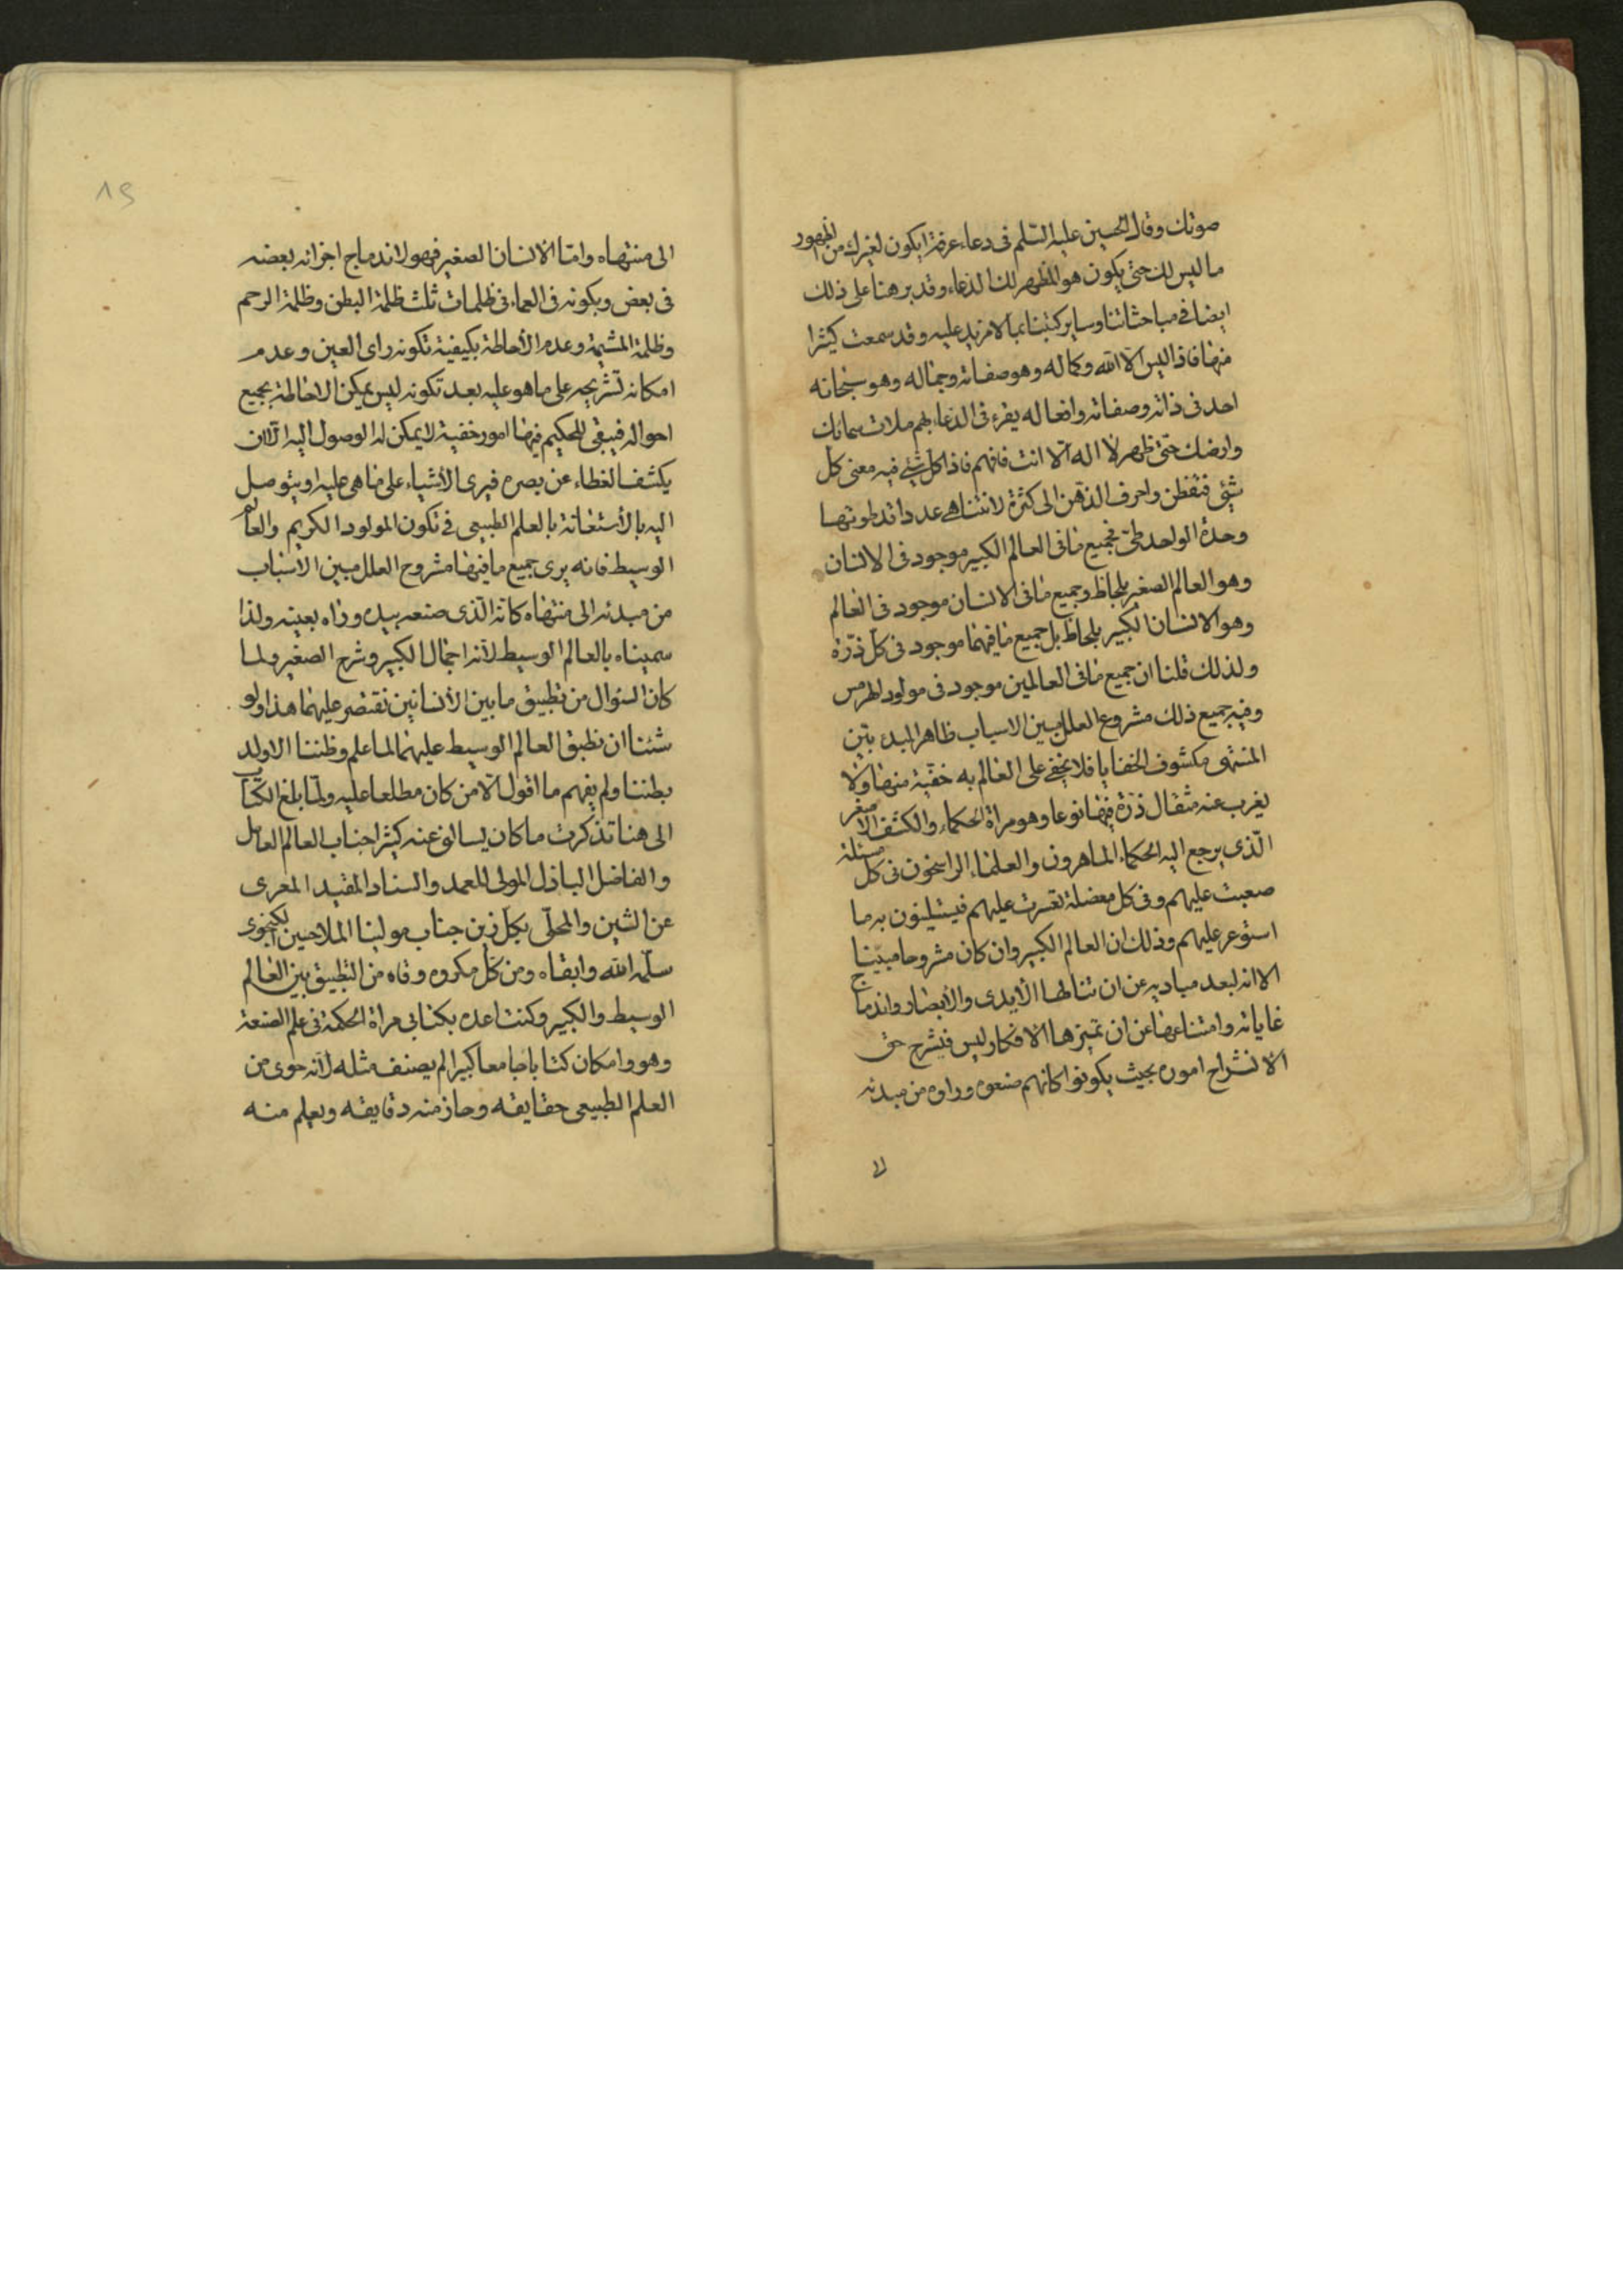 صوتك وقال الحسين عليه السلم فى دعاء عرفة ايكون لغيرك من الظهور
ما ليس لك حتى يكون هو المظهر لك الدعاء وقد برهنا على ذلك
ايضا فى مباحثاتنا وساير كتبنا بما لا مزيد عليه وقد سمعت كثيرا
منها فاذا ليس الا الله وكماله وهو صفاته وجماله وهو سبحانه
احد فى ذاته وصفاته وافعاله يقرء فى الدعاء بهم ملات سمائك
وارضك حتى ظهر لا اله الا انت فافهم فاذا كل شئ فيه معنى كل
شئ فتفطن واحرف الذهن الى كثرة لا تتناهى عددا قد طوتها
وحدة الواحد طى فجميع ما فى العالم الكبير موجود فى الانسان
وهو العالم الصغير بلحاظ وجميع ما فى الانسان موجود فى العالم
وهو الانسان الكبير بلحاظ بل جميع ما فيهما موجود فى كل ذرة
ولذلك قلنا ان جميع ما فى العالمين موجود فى مولود الهرمس
وفيه جميع ذلك مشروح العلل مبين الاسباب ظاهر المبدء بين
المنتهى مكشوف الخفايا فلا يخفى على العالم به خفية منها ولا
يغرب عنه مثقال ذرة فيها نوعا وهو مراة الحكماء والكشف الاصغر
الذى يرجع اليه الحكماء الماهرون والعلماء الراسخون فى كل مسئلة
صعبت عليهم وفى كل معضلة تعسرت عليهم فيستلينون به ما
استوعر عليهم وذلك ان العالم الكبير وان كان مشروحا مبينا
الا انه لبعد مباديه عن ان تنالها الايدى والابصار واندماج
غاياته وامتناعها عن ان تميزها الافكار ليس فيشرح حق
الانشراح اموره بحيث يكونوا كانهم صنعوه وراوه من مبدئه
الى
١٩
الى منتهاه واما الانسان الصغير فهو لاندماج اجزائه بعضه
فى بعض وبكونه فى العماء فى ظلمات ثلث ظلمة البطن وظلمة الرحم
وظلمة المشيمة وعدم الاحاطة بكيفية تكونه راى العين وعدم
امكان تشريحه على ما هو عليه بعد تكونه ليس يمكن الاحاطة بجميع
احواله فيبقى للحكيم فيها امور خفية لا يمكن له الوصول اليه الا ان
يكشف الغطاء عن بصره فيرى الاشياء على ما هى عليه او يتوصل
اليه بالاستعانة بالعلم الطبيعى فى تكون المولود الكريم والعالم
الوسيط فانه يرى جميع ما فيها مشروح العلل مبين الاسباب
من مبدئه الى منتهاه كانه الذى صنعه بيده وراه بعينه ولذا
سميناه بالعالم الوسيط لانه اجمال الكبير وشرح الصغير ولما
كان السؤال من تطبيق ما بين الانسانين نقتصر عليهما هذا ولو
شئنا ان نطبق العالم الوسيط عليهما لما علم وظننا الا ولد
بطننا ولم يفهم ما اقول الا من كان مطلعا عليه ولما بلغ الكتاب
الى هنا تذكرت ما كان يسالنى عنه كثيرا جناب العالم العامل
والفاضل الباذل المولى المعمد والسناد المفيد المعرى
عن الشين والمحلى بكل زين جناب مولينا الملا حسين الكنجوى
سلمه الله وابقاه ومن كل مكروه وقاه من التطبيق بين العالم
الوسيط والكبير وكنت اعده بكتابى مراة الحكمة فى علم الصنعة
وهو وامكان كتابا جامعا كبيرا لم يصنف مثله لانه حوى من
العلم الطبيعى حقايقه وحاز منه دقايقه ويعلم منه